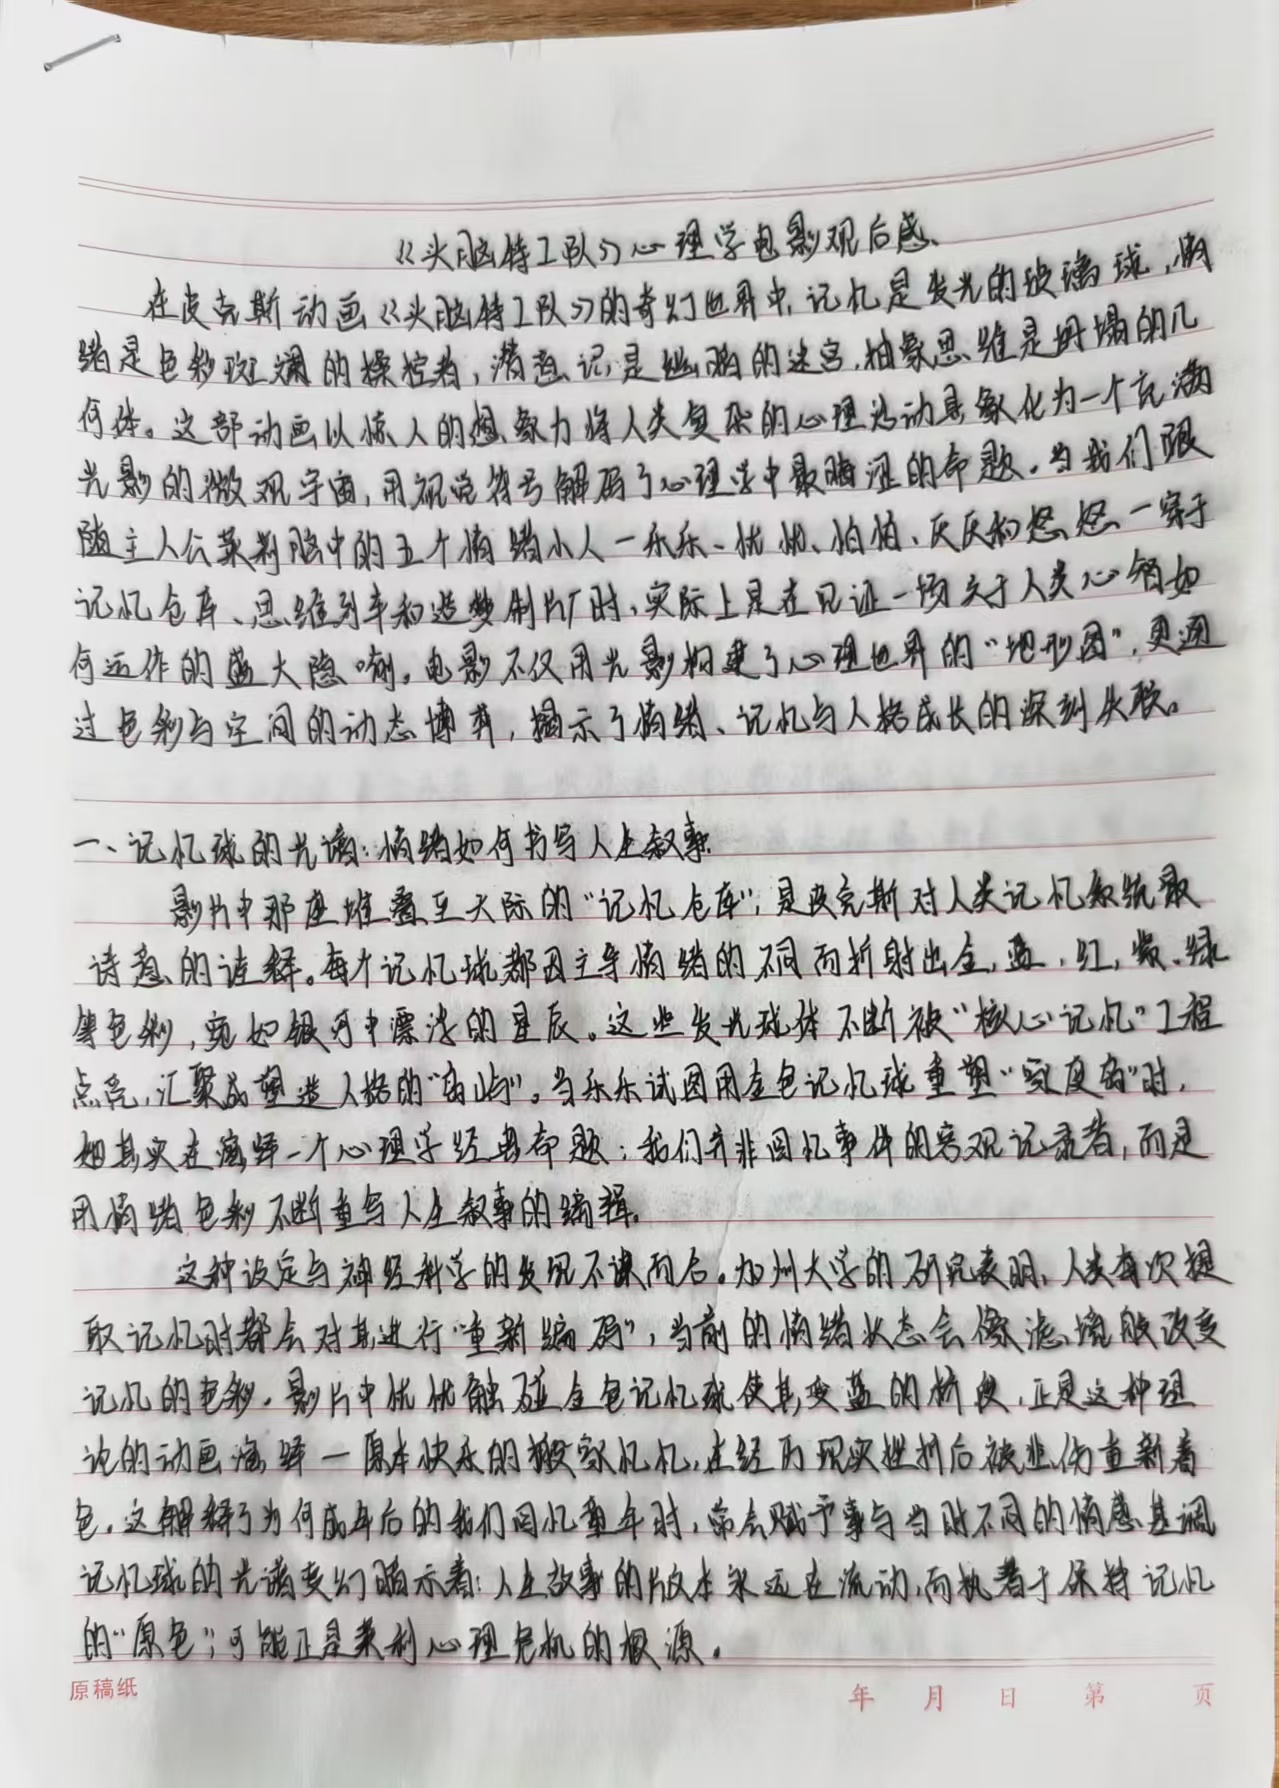 《头脑特工队》心理学电影观后感
在皮克斯动画《头脑特工队》的奇幻世界中,记忆是发光的玻璃球,情
绪是色彩斑斓的操控者,潜意识是幽暗的迷宫,抽象思维是坍塌的几
何体。这部动画以惊人的想象力将人类复杂的心理活动具象化为一个充满
光影的微观宇宙,用视觉符号解码了心理学中最晦涩的命题。当我们跟
随主人公莱利脑中的五个情绪小人—乐乐、忧忧、怕怕、厌厌和怒怒—穿于
记忆仓库、思维列车和造梦制片厂时,实际上是在见证一场关于人类心智如
何运作的盛大隐喻。电影不仅用光影构建了心理世界的“地形图”,更通
过色彩与空间的动态博弈,揭示了情绪、记忆与人格成长的深刻关联。
一、记忆球的光谱:情绪如何书写人生叙事
影片中那座堆叠至天际的“记忆仓库”,是皮克斯对人类记忆系统最
诗意的诠释。每个记忆球都因主导情绪的不同而折射出金,蓝,红,紫、绿
等色彩,宛如银河中漂浮的星辰。这些发光球体不断被“核心记忆”工程
点亮,汇聚成塑造人格的“岛屿”。当乐乐试图用金色记忆球重塑“家庭岛”时,
她其实在演绎一个心理学经典命题:我们并非回忆事件的客观记录者,而是
用情绪色彩不断重写人生叙事的编辑。
这种设定与神经科学的发现不谋而合。加州大学的研究表明,人类每次提
取记忆时都会对其进行“重新编码”,当前的情绪状态会像滤镜般改变
记忆的色彩。影片中忧忧触碰金色记忆球使其变蓝的桥段,正是这种理
论的动画演绎—原本快乐的搬家忆忆,在经历现实挫折后被悲伤重新着
色。这解释了为何成年后的我们回忆童年时,常会赋予事与当时不同的情感基调
记忆球的光谱变幻暗示着:人生故事的版本永远在流动,而执着于保持记忆
的“原色”,可能正是莱利心理危机的根源。
原稿纸 年 月 日 第 页